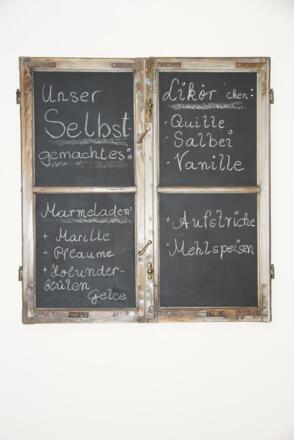 Unser
Selbst-
gemachtes:
Marmeladen:
+ Marille
+ Pflaume
+ Holunder-
blüten
Gelee
Likör'chen:
• Quille
• Salbei
• Vanille
+ Aufstriche
+ Mehlspeisen